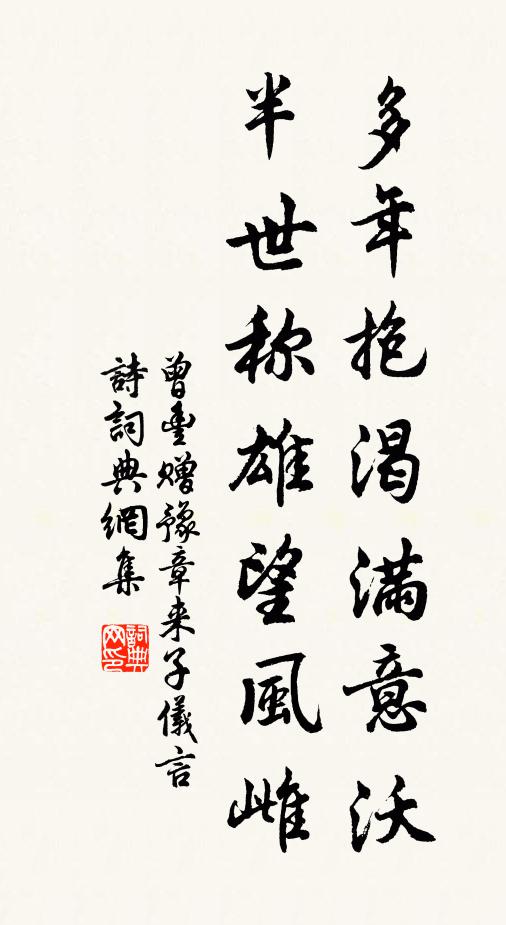 多年抱渴满意沃
半世称雄望風雌
曾豊赠豫章来子儀言
詩詞典網集
詞典网印